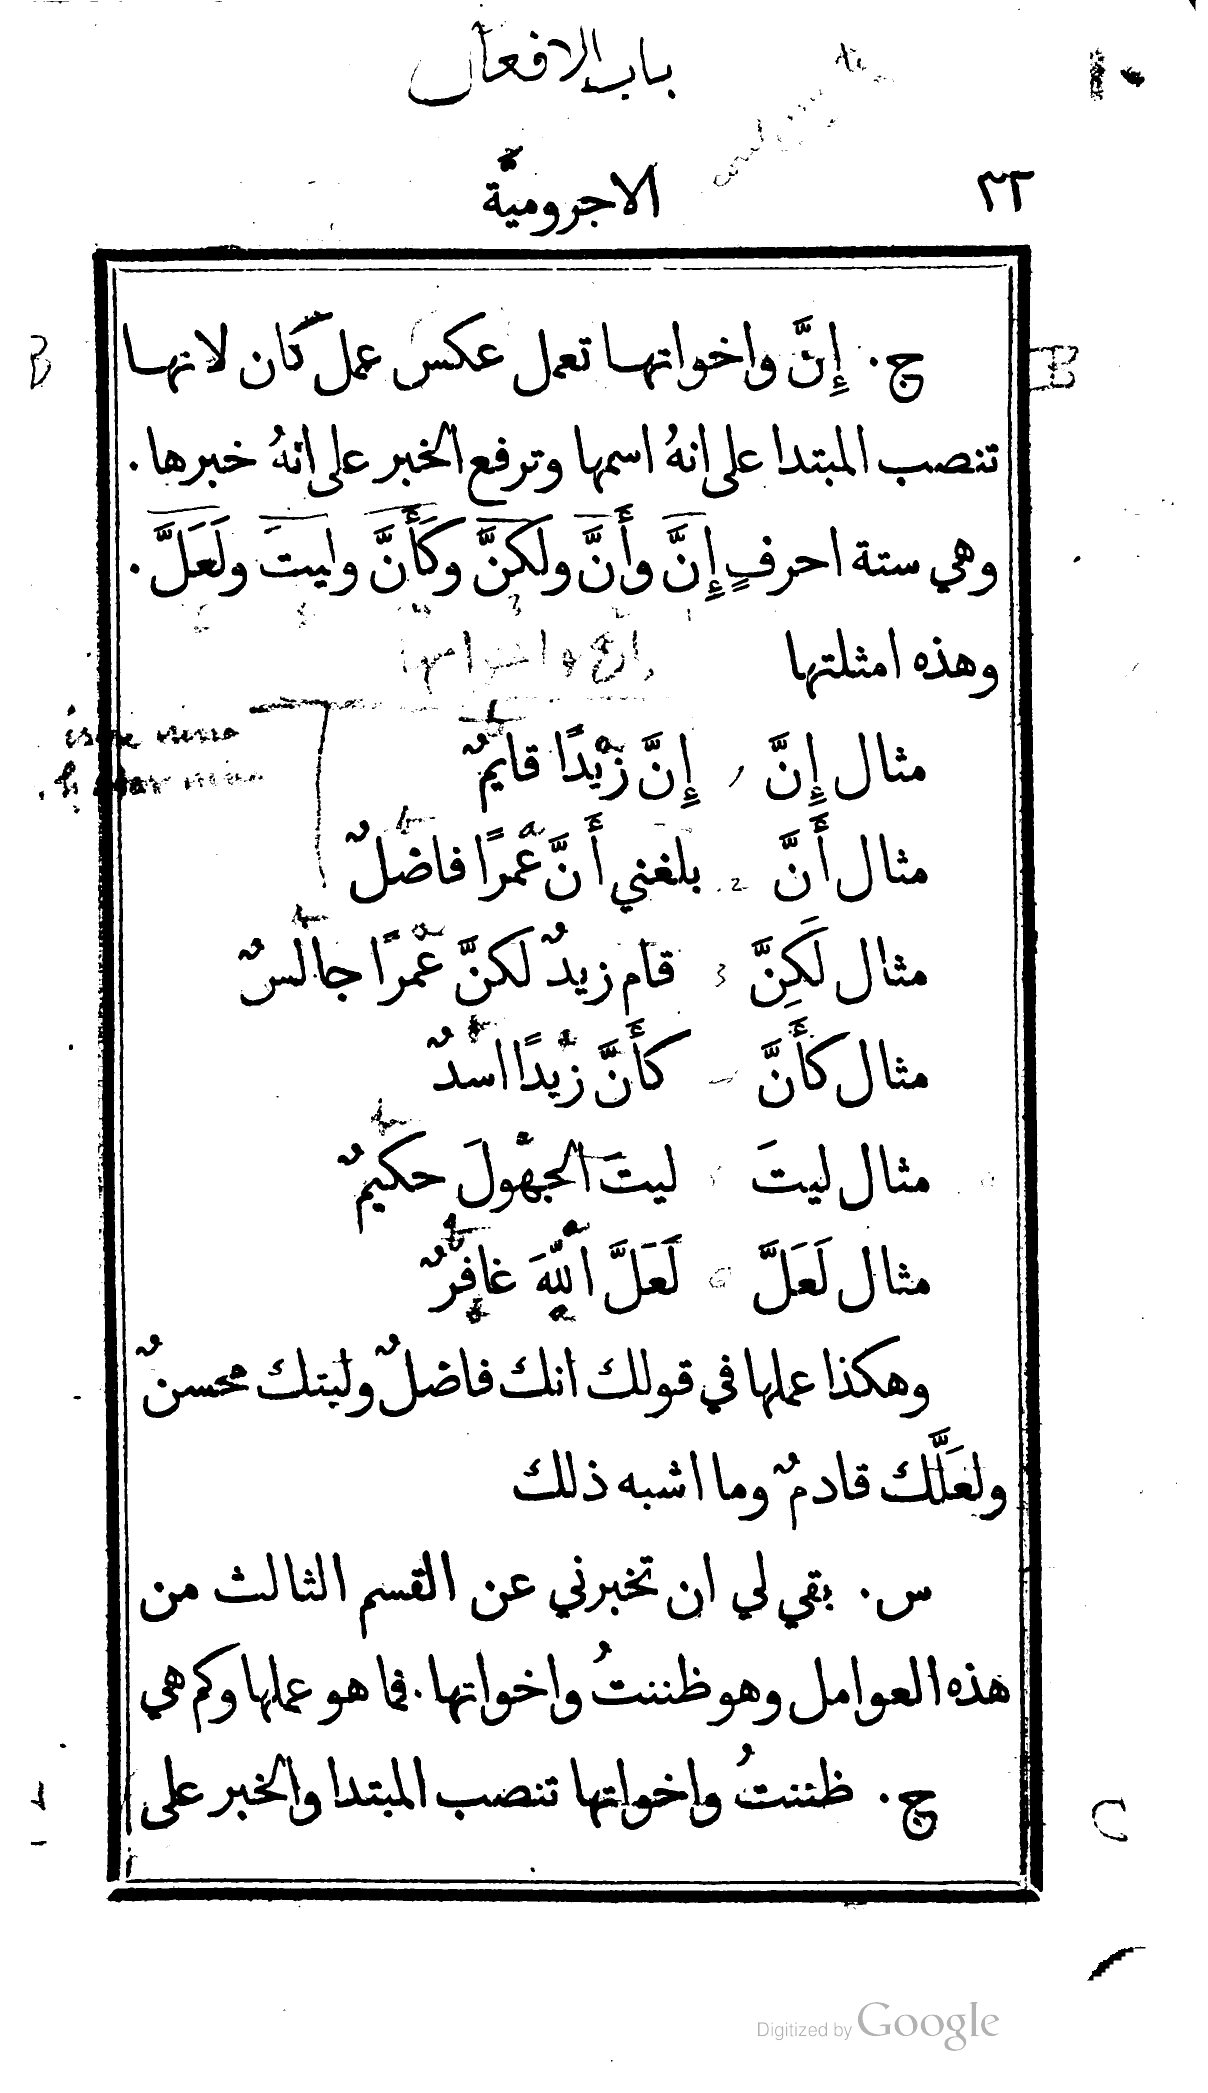 باب الافعال
٣٢
الاجروميَّة
ج. إِنَّ واخواتها تعمل عكس عمل كان لانها
تنصب المبتدا على انهُ اسمها وترفع الخبر على انهُ خبرها.
وهي ستة احرفٍ إِنَّ وأَنَّ ولكنَّ وكأَنَّ وليتَ ولَعَلَّ.
وهذه امثلتها
ان واخواتها
مثال إِنَّ إِنَّ زيدًا قايمٌ
مثال أَنَّ 2 بلغني أَنَّ عمرًا فاضلٌ
مثال لَكِنَّ 3 قام زيدٌ لكنَّ عمرًا جالسٌ
مثال كأَنَّ كأَنَّ زيدًا اسدٌ
مثال ليتَ ليتَ الجهولَ حكيمٌ
مثال لَعَلَّ 6 لَعَلَّ اللّٰهَ غافرٌ
وهكذا عملها في قولك انك فاضلٌ وليتك محسنٌ
ولعلَّك قادمٌ وما اشبه ذلك
س. بقي لي ان تخبرني عن القسم الثالث من
هذه العوامل وهو ظننتُ واخواتها. فما هو عملها وكم هي
ج. ظننتُ واخواتها تنصب المبتدا والخبر على
B
B
C
Digitized by Google